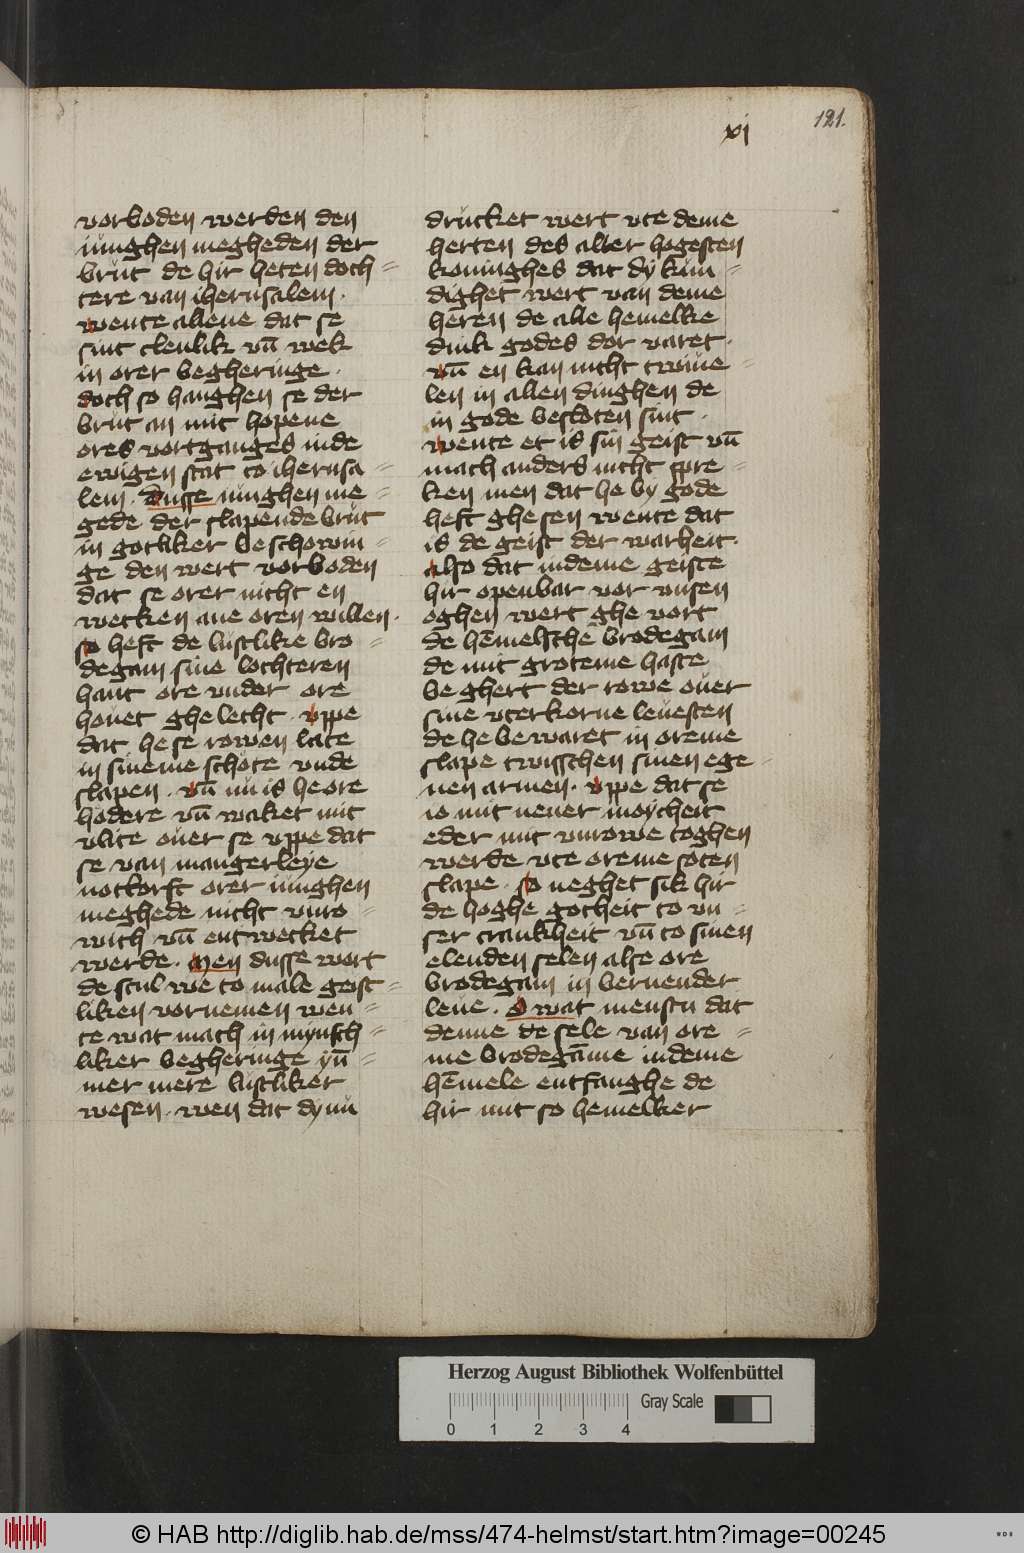 121.
xj
vorboden werden den
iunghen megheden der
brut de hir heten doch=
tere van iherusalem.
wente allene dat se
sint clenlik vn̄ wek
in orer begheringe.
doch so hanghen se der
brut an mit hopene
ores vortganges inde
ewigen stat to iherusa=
lem. Dusse iunghen me=
gede der slapende brut
in gotliker beschowin=
ge den wert vorboden
dat se orer nicht en
wecken ane oren willen.
so heft de lustlike bro=
degam sine lochteren
hant ore vnder ore
houet ghelecht. vppe
dat he se rowen late
in sineme schote vnde
slapen. vn̄ nu is he ore
hodere vn̄ waket mit
vlite ouer se vppe dat
se van mangerleye
notdorft orer iunghen
meghede nicht vnro=
wich vn̄ entwecket
werde. Men dusse wort
de scul we to male geist=
liken vornemen wen=
te wat mach in mynsch=
liker begheringe yn̄=
mer mere lustliker
wesen. wen dat dy nu
drucket wert vte deme
herten des aller hogesten
koninghes dat dy kun=
dighet wert van deme
heren de alle hemelke
dink godes dor varet.
vn̄ en kan nicht twiue=
len in allen dinghen de
in gode besloten sint.
wente et is sin geist vn̄
mach anders nicht spre=
ken men dat he by gode
heft ghesen wente dat
is de geist der warheit.
also dat indeme geiste
hir openbar vor vnsen
oghen wert ghe vort
de hemelsche brodegam
de mit groteme haste
beghert der rowe ouer
sine vterkorne leuesten
de he bewaret in oreme
slape twisschen sinen ege=
nen armen. vppe dat se
io mit nener moycheit
eder mit vnrowe toghen
werde vte oreme soten
slape. so neghet sik hir
de hoghe gotheit to vn=
ser crankheit vn̄ to sinen
elenden selen alse ore
brodegam in bernender
leue. O wat menstu dat
denne de sele van ore=
me brodegāme indeme
hēmele entfanghe de
hir mit so hemelker
Herzog August Bibliothek Wolfenbüttel
Gray Scale
0 1 2 3 4
© HAB http://diglib.hab.de/mss/474-helmst/start.htm?image=00245